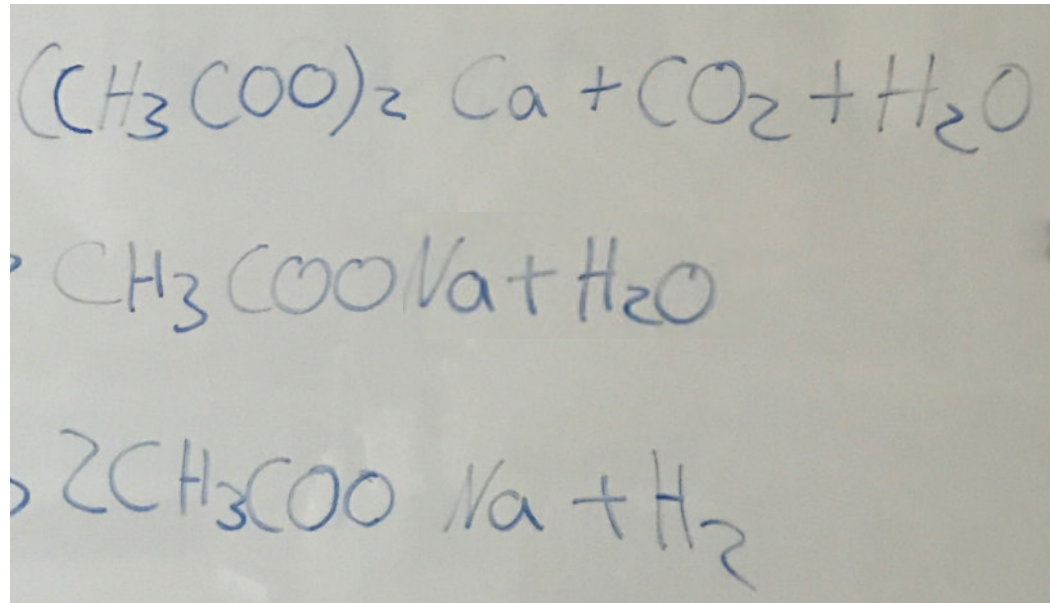 (CH₃COO)₂ Ca + CO₂ + H₂O
CH₃COONa + H₂O
2CH₃COO Na + H₂